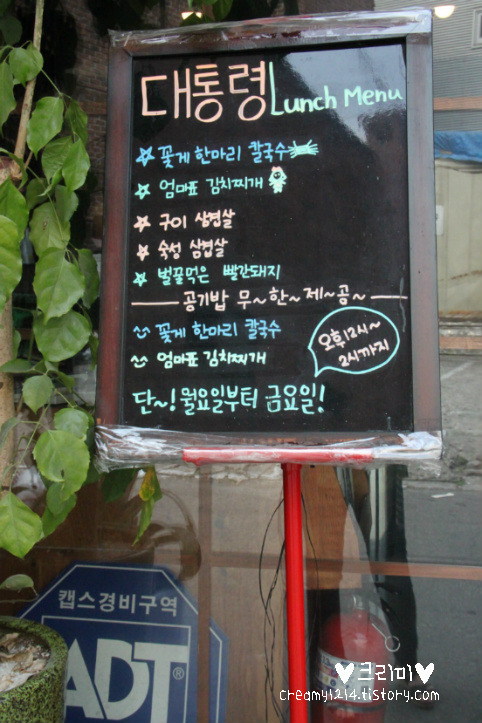 대통령 Lunch Menu
☆ 꽃게 한마리 칼국수
☆ 엄마표 김치찌개
☆ 구이 삼겹살
☆ 숙성 삼겹살
☆ 벌꿀먹은 빨간돼지
공기밥 무~한~제~공~
꽃게 한마리 칼국수
엄마표 김치찌개
오후12시~
2시까지
단~! 월요일부터 금요일!
캡스경비구역
ADT
♥크리미♥
creamy1214.tistory.com